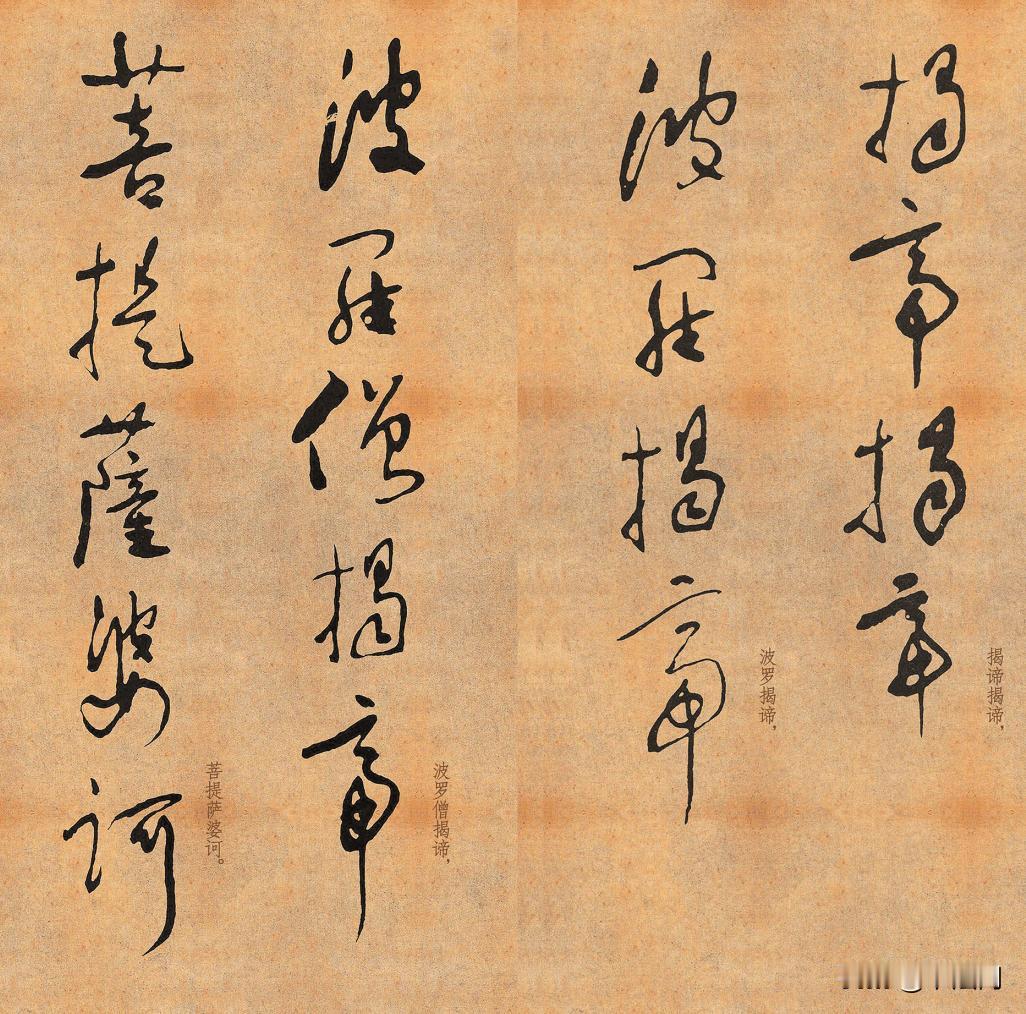 揭谛揭谛，
揭帝揭帝
波罗揭谛，
波羅揭帝
波罗僧揭谛，
波羅僧揭帝
菩提萨婆诃。
菩提薩婆訶